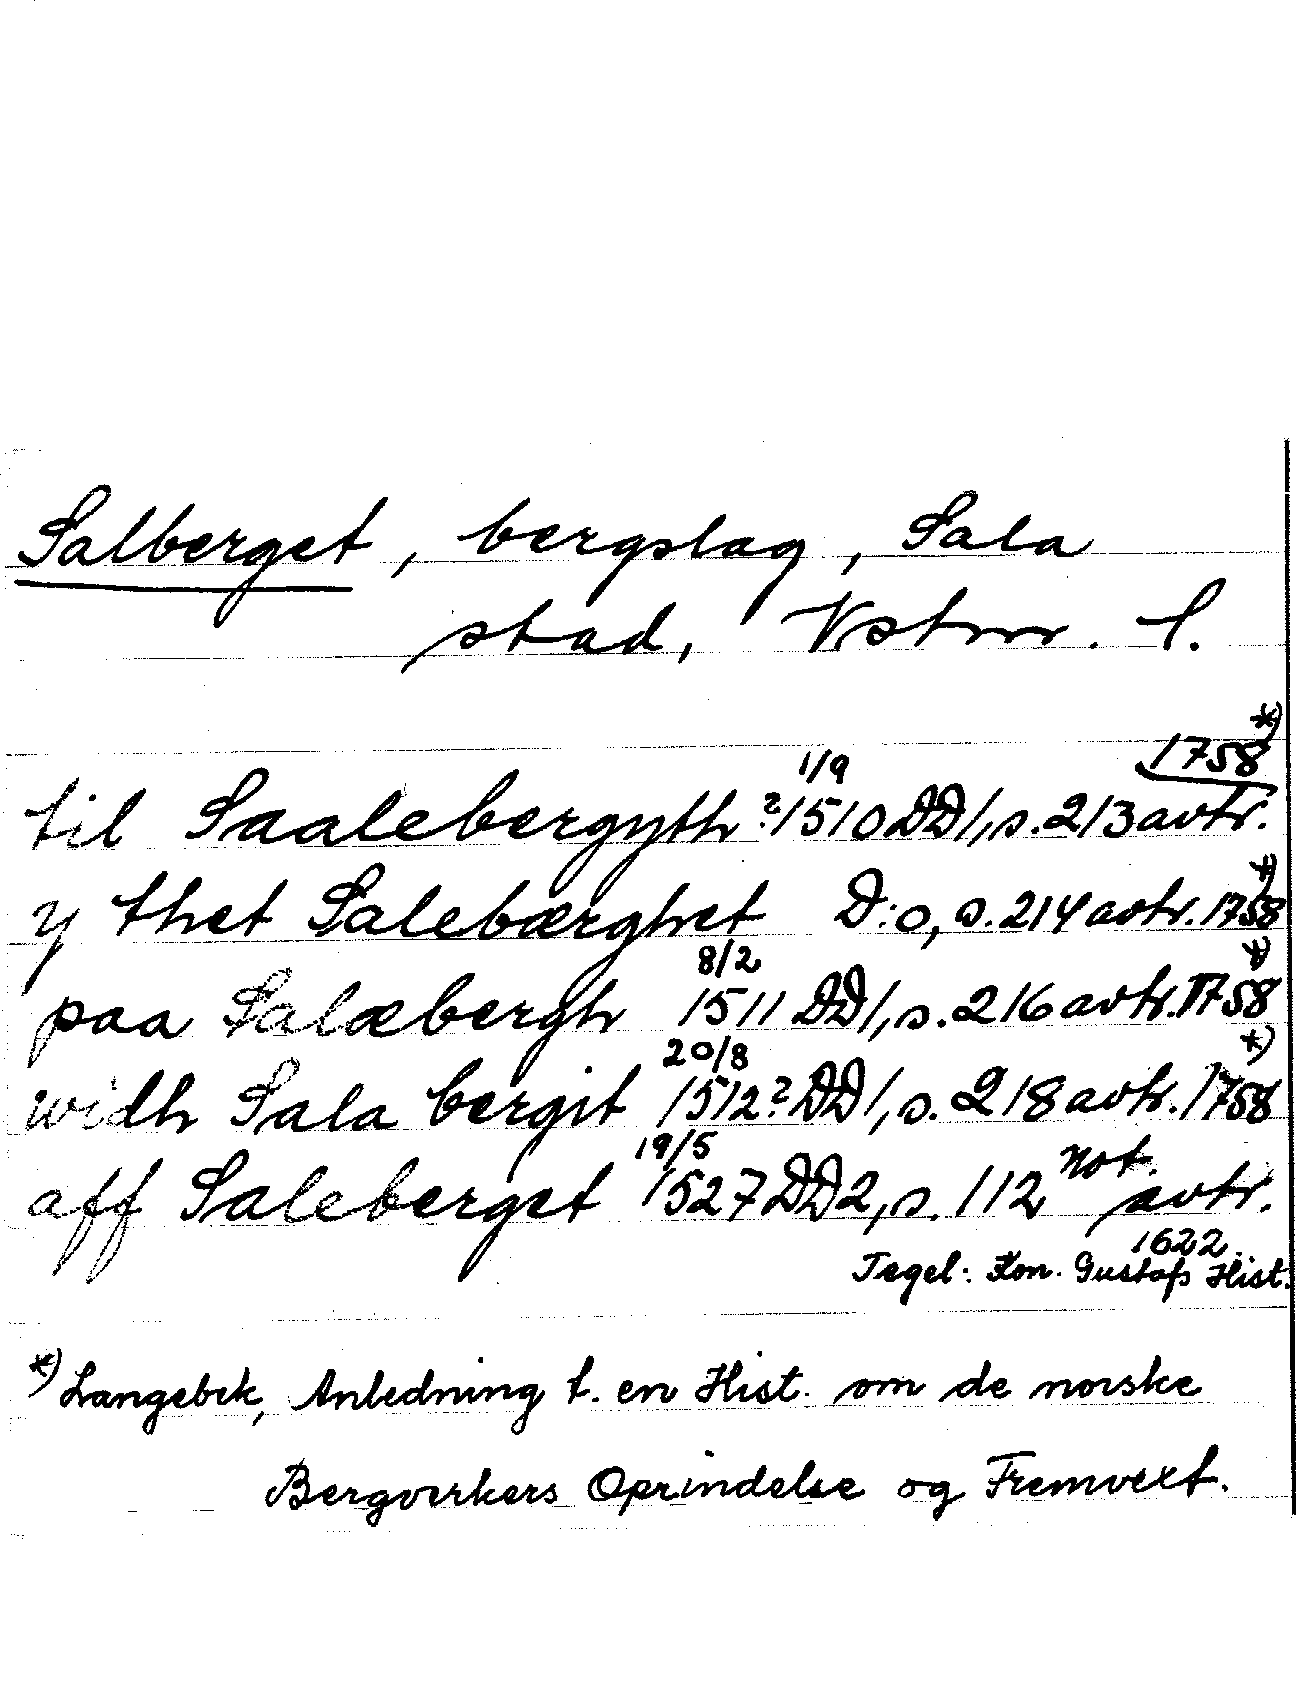 Salberget, bergslag, Sala
stad, Vstm. l.
til Saalebergyth ? 1/9 1510 DD1, s. 213 avtr. 1758 *)
y thet Salebærghet D:o, s. 214 avtr. 1758 *)
paa Salæbergh 8/2 1511 DD1, s. 216 avtr. 1758 *)
widh Sala bergit 20/8 1512? DD1, s. 218 avtr. 1758 *)
aff Saleberget 19/5 1527 DD2, s. 112 Not. avtr.
1622
Tegel: Kon. Gustafs Hist.
*) Langebek, Anledning t. en Hist. om de norske
Bergverkers Oprindelse og Fremvext.